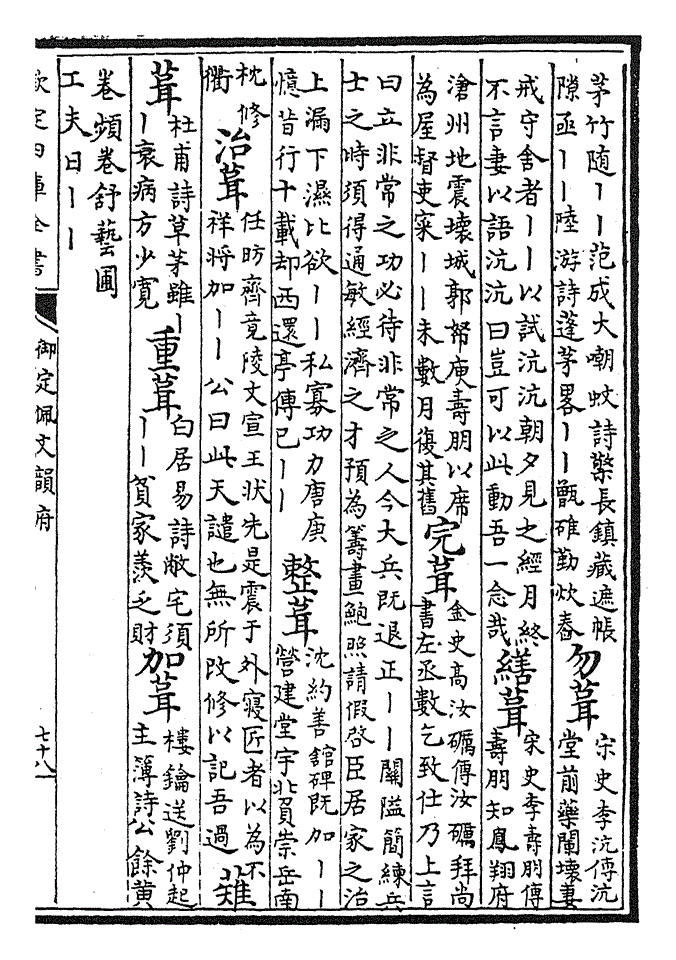 茅竹随丨丨范成大嘲蚊詩檠長鎮藏遮帳
隙亟丨丨陸游詩蓬茅畧丨丨甑碓勤炊舂
勿葺
宋史李沆傳沆
堂前藥闌壞妻
戒守舍者丨丨以試沆沆朝夕見之經月終
不言妻以語沆沆曰豈可以此動吾一念哉
繕葺
宋史李壽朋傳
壽朋知鳳翔府
滄州地震壞城郭帑庾壽朋以席
為屋督吏寀丨丨未數月復其舊
完葺
金史高汝礪傳汝礪拜尚
書左丞數乞致仕乃上言
曰立非常之功必待非常之人今大兵既退正丨丨關隘簡練兵
士之時須得通敏經濟之才預為籌畫鮑照請假啓臣居家之治
上漏下濕比欲丨丨私寡功力唐庚
憶昔行十載却西還亭傳已丨丨
整葺
沈約善館碑既加丨丨
營建堂宇北負崇岳南
枕修
衢
治葺
任昉齊竟陵文宣王狀先是震于外寢匠者以為不
祥將加丨丨公曰此天譴也無所改修以記吾過
薙
葺
杜甫詩草茅雖丨
丨衰病方少寬
重葺
白居易詩敝宅須
丨丨貧家羨乏財
加葺
樓鑰送劉仲起
主簿詩公餘黄
卷頻卷舒藝圃
工夫日丨丨
欽定四庫全書
御定佩文韻府
七十八